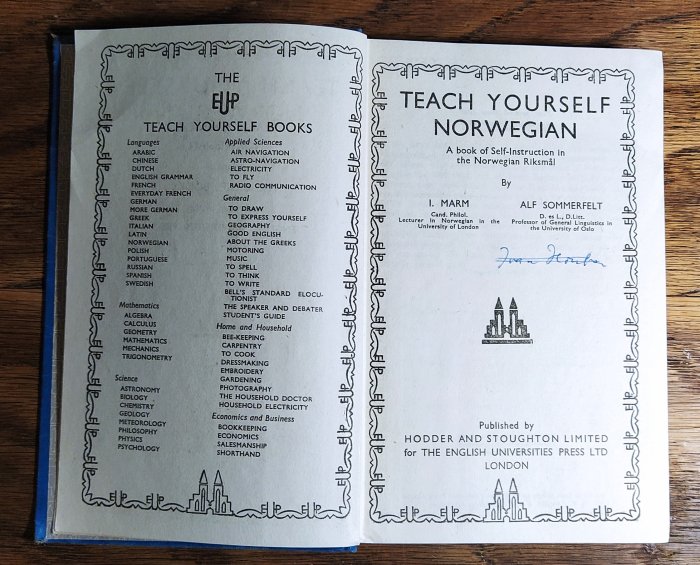 THE
EUP
TEACH YOURSELF BOOKS
Languages
ARABIC
CHINESE
DUTCH
ENGLISH GRAMMAR
FRENCH
EVERYDAY FRENCH
GERMAN
MORE GERMAN
GREEK
ITALIAN
LATIN
NORWEGIAN
POLISH
PORTUGUESE
RUSSIAN
SPANISH
SWEDISH
Mathematics
ALGEBRA
CALCULUS
GEOMETRY
MATHEMATICS
MECHANICS
TRIGONOMETRY
Science
ASTRONOMY
BIOLOGY
CHEMISTRY
GEOLOGY
METEOROLOGY
PHILOSOPHY
PHYSICS
PSYCHOLOGY
Applied Sciences
AIR NAVIGATION
ASTRO-NAVIGATION
ELECTRICITY
TO FLY
RADIO COMMUNICATION
General
TO DRAW
TO EXPRESS YOURSELF
GEOGRAPHY
GOOD ENGLISH
ABOUT THE GREEKS
MOTORING
MUSIC
TO SPELL
TO THINK
TO WRITE
BELL'S STANDARD ELOCU-
TIONIST
THE SPEAKER AND DEBATER
STUDENT'S GUIDE
Home and Household
BEE-KEEPING
CARPENTRY
TO COOK
DRESSMAKING
EMBROIDERY
GARDENING
PHOTOGRAPHY
THE HOUSEHOLD DOCTOR
HOUSEHOLD ELECTRICITY
Economics and Business
BOOKKEEPING
ECONOMICS
SALESMANSHIP
SHORTHAND
TEACH YOURSELF
NORWEGIAN
A book of Self-Instruction in
the Norwegian Riksmål
By
I. MARM
Cand. Philol.
Lecturer in Norwegian in the
University of London
ALF SOMMERFELT
D. es L., D.Litt.
Professor of General Linguistics in
the University of Oslo
Published by
HODDER AND STOUGHTON LIMITED
for THE ENGLISH UNIVERSITIES PRESS LTD
LONDON